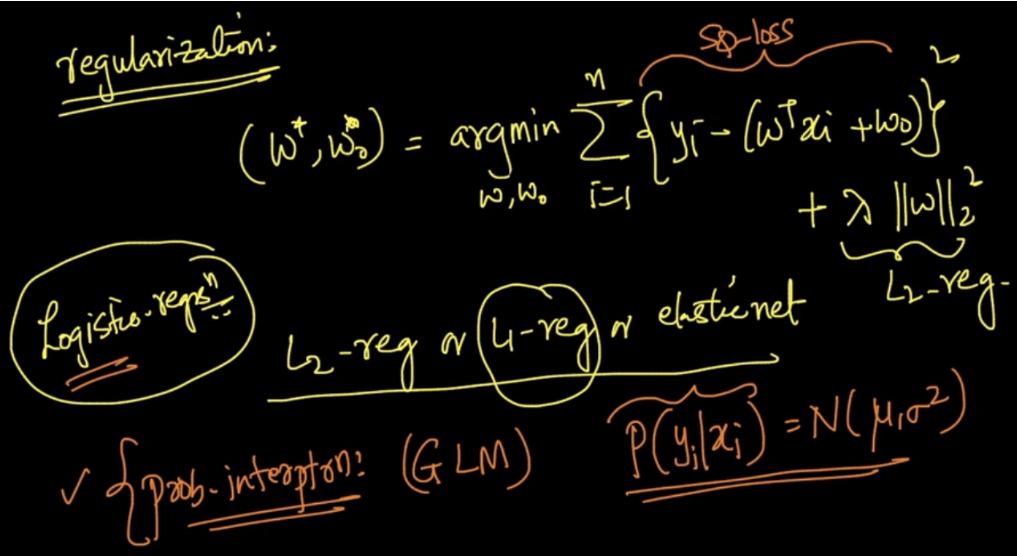 regularization:
sq-loss
(w*, w₀*) = argmin Σ {yᵢ - (wᵀxᵢ + w₀)}²
w, w₀ i=1 n
+ λ ||w||₂²
L₂-reg.
Logistic-regsⁿ
L₂-reg or L₁-reg or elasticnet
✓ {prob. interptron: (GLM) P(yᵢ|xᵢ) = N(μ, σ²)